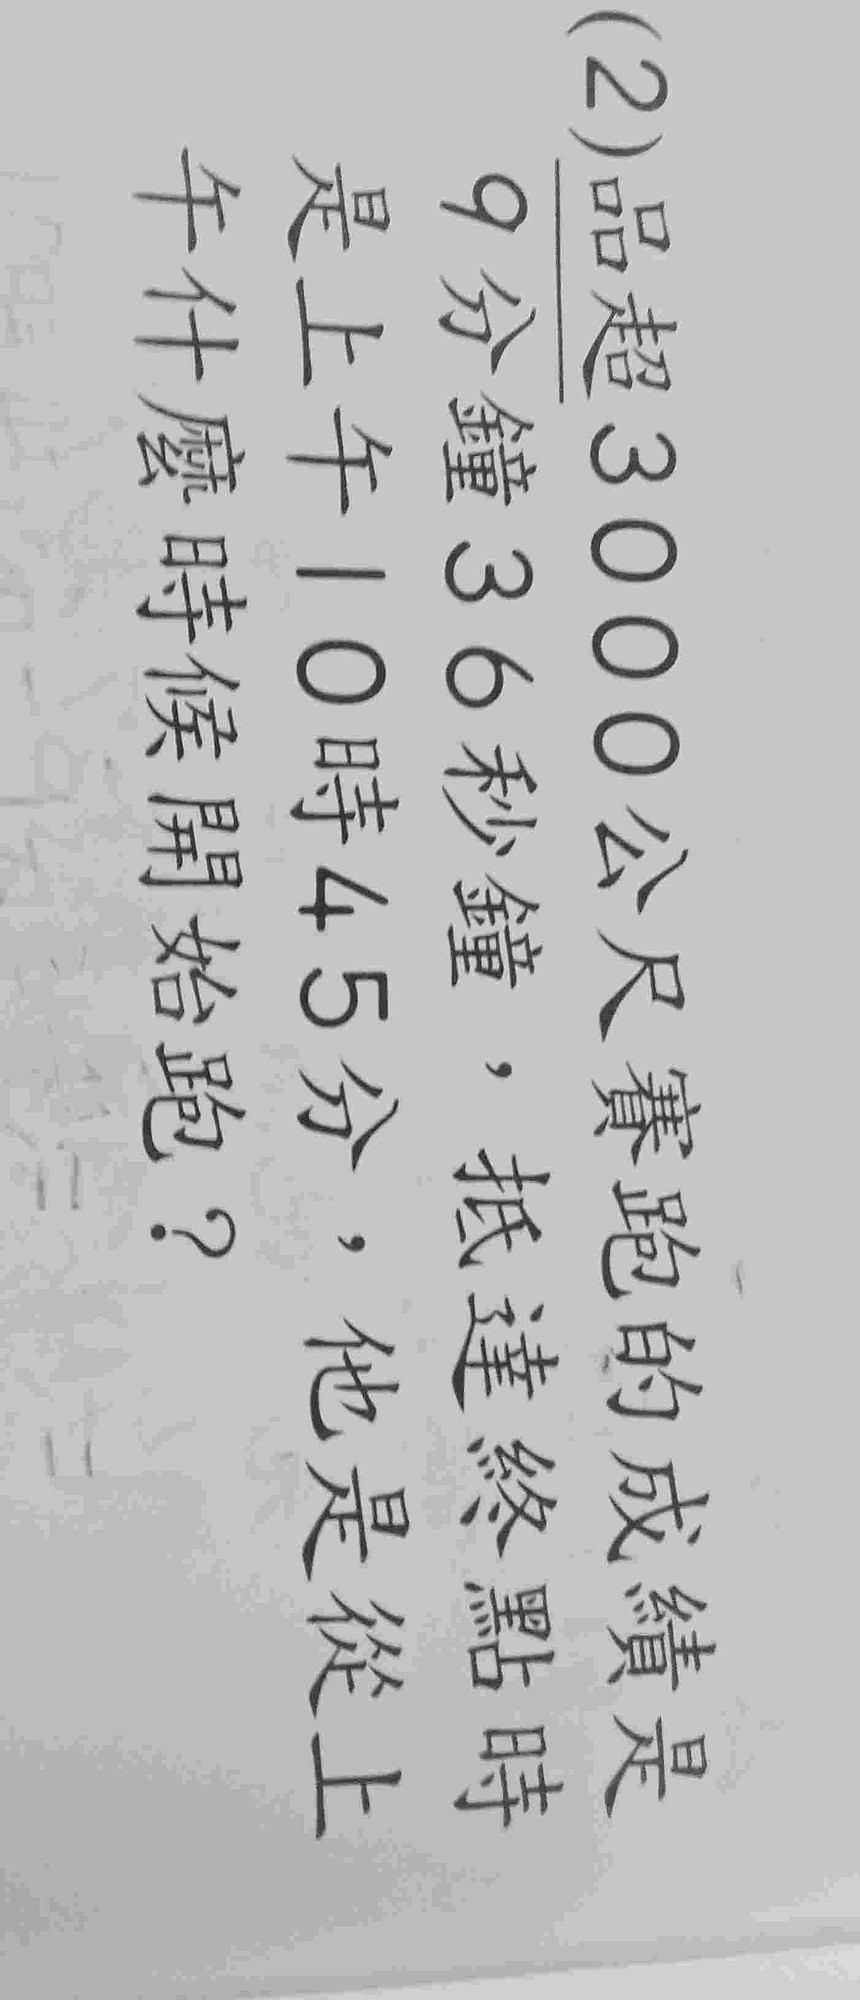 (2)品超3000公尺賽跑的成績是
9分鐘36秒鐘，抵達終點時
是上午10時45分，他是從上
午什麼時候開始跑？